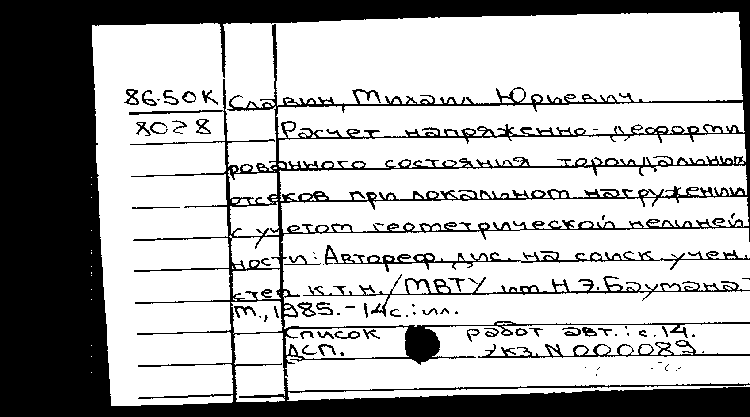 86-50К Славин, Михаил Юрьевич.
8028 Расчет напряженно-деформи
рованного состояния тороидальных
отсеков при локальном нагружении
с учетом геометрической нелиней
ности: Автореф. дис. на соиск учен.
степ к.т.н. / МВТУ им. Н.Э. Баумана
М., 1985. - 14с.: ил.
Список работ авт.: с. 14.
ДСП. Экз. N 000089.